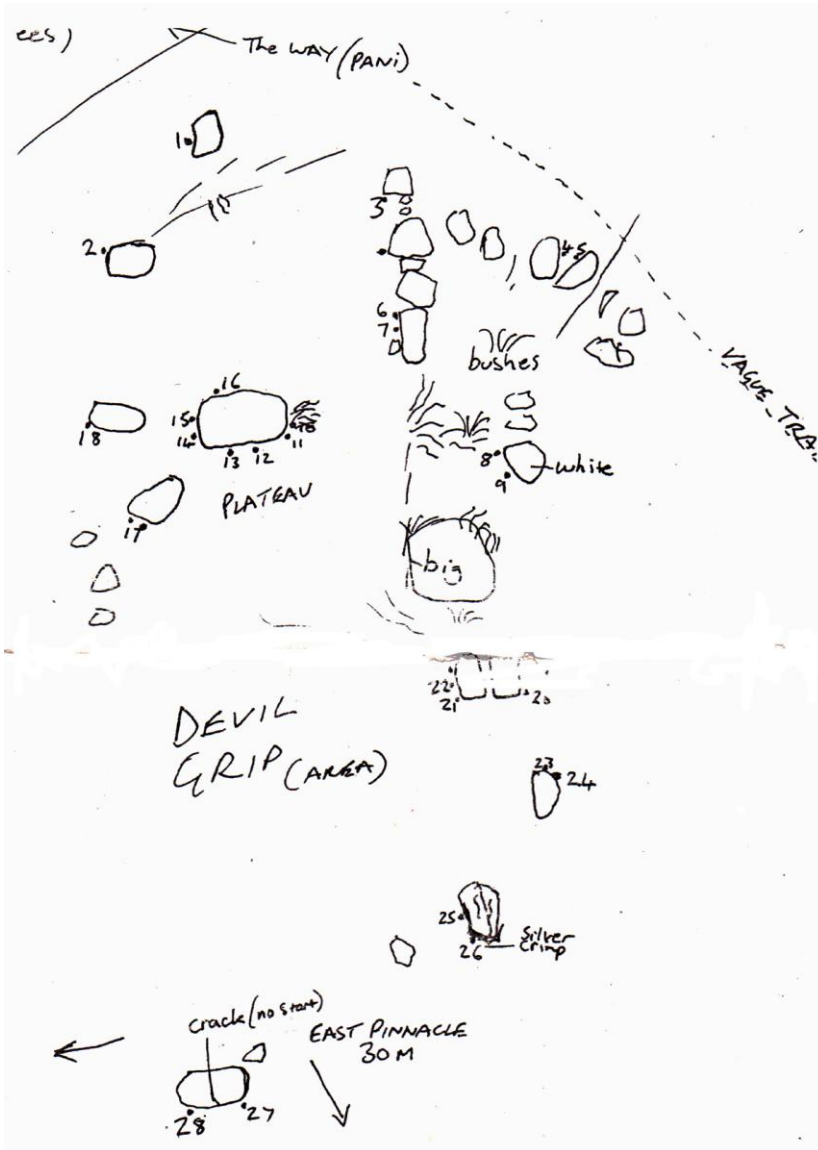 ees)
The WAY (PANI)
1
2
3
4 5
6
7
bushes
VAGUE TRA
16
15
14
13
12
11
10
18
17
PLATEAU
8
9
white
big
22
21
20
DEVIL
GRIP (AREA)
23
24
25
26
Silver
Crimp
crack (no start)
EAST PINNACLE
30 M
28
27